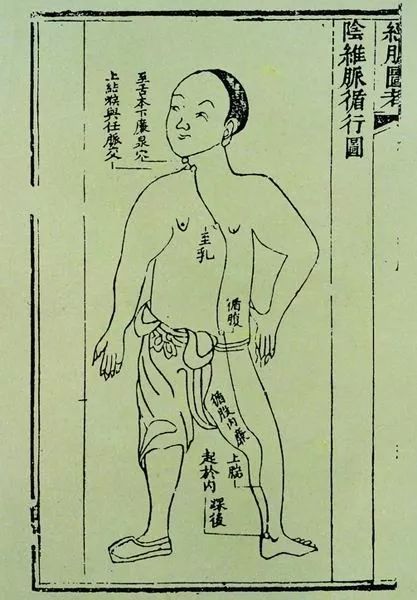 經脉圖考
陰維脈循行圖
至舌本下廉泉穴
上結喉與任脈交
至乳
循腹
循股內廉
上腨
起於內踝後